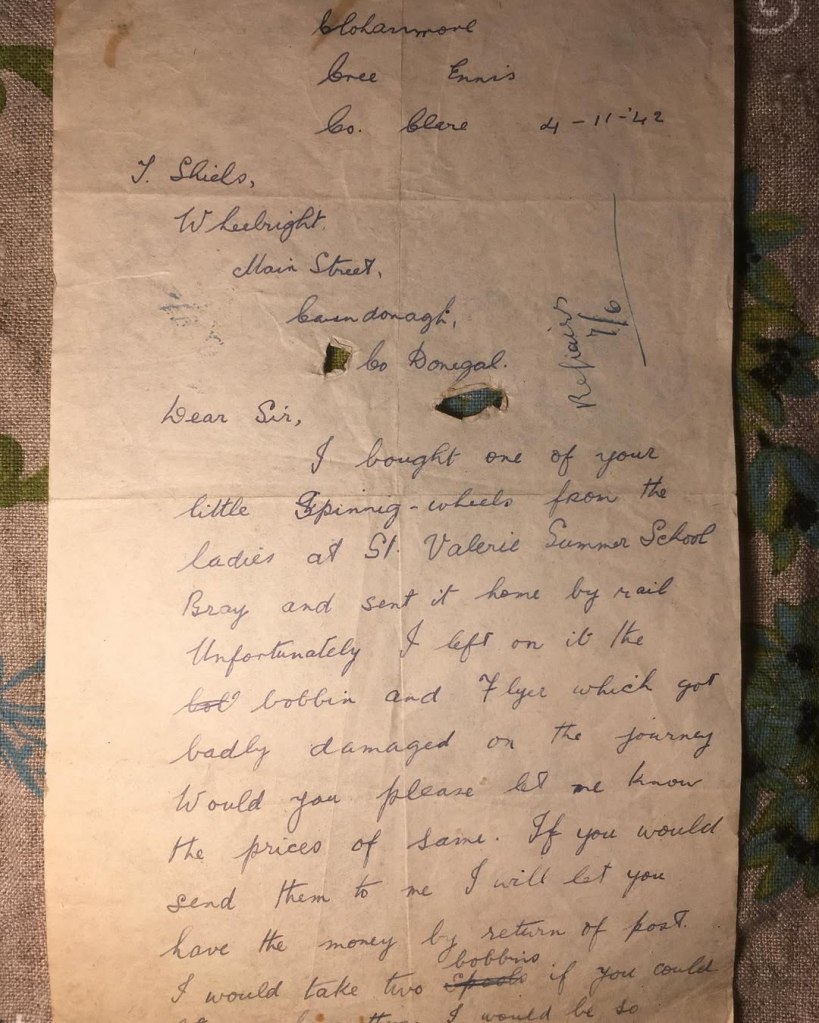 Clohanmore
Cree Ennis
Co. Clare 4-11-'42
J. Shiels,
Wheelright.
Main Street,
Carndonagh,
Co Donegal.
Repairs
7/6
Dear Sir,
I bought one of your
little Spinnig-wheels from the
ladies at St. Valerie Summer School
Bray and sent it home by rail
Unfortunately I left on it the
bobbin and Flyer which got
badly damaged on the journey
Would you please let me know
the prices of same. If you would
send them to me I will let you
have the money by return of post.
I would take two bobbins if you could
I would be so